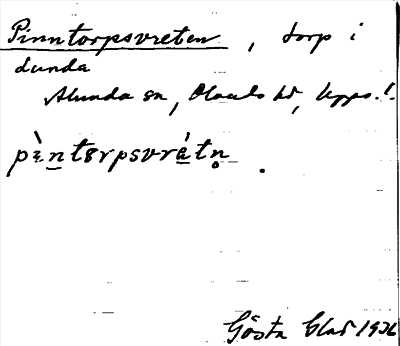 Pinntorpsvreten, torp i
Lunda
Alunda sn, Olands hd, Upps. l.
pìntɵrpsvrètn̥.
Gösta Blad 1936